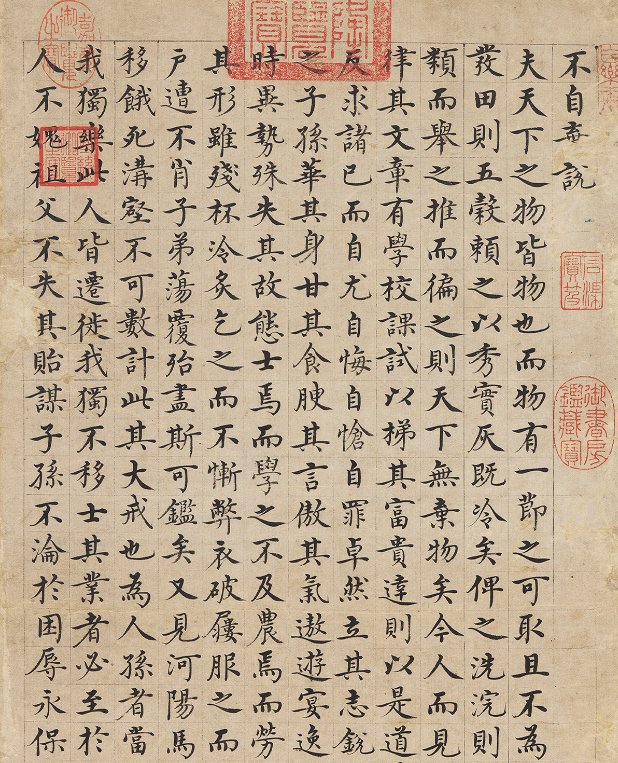 不自弃說
夫天下之物皆物也而物有一節之可取且不為
發田則五穀賴之以秀實灰既冷矣俾之洗浣則
類而舉之推而徧之則天下無棄物矣今人而見
律其文章有學校課試以梯其富貴達則以是道
反求諸己而自尤自悔自愴自罪卓然立其志銳
之子孫華其身甘其食腴其言傲其氣遨遊宴逸
時異勢殊失其故態士焉而學之不及農焉而勞
其形雖殘杯冷炙乞之而不慚弊衣破屨服之而
戶遭不肖子弟蕩覆殆盡斯可鑑矣又見河陽馬
移餓死溝壑不可數計此其大戒也為人孫者當
我獨樂此人皆遷徙我獨不移士其業者必至於
人不媿祖父不失其貽謀子孫不淪於困辱永保
御書房鑑藏寶